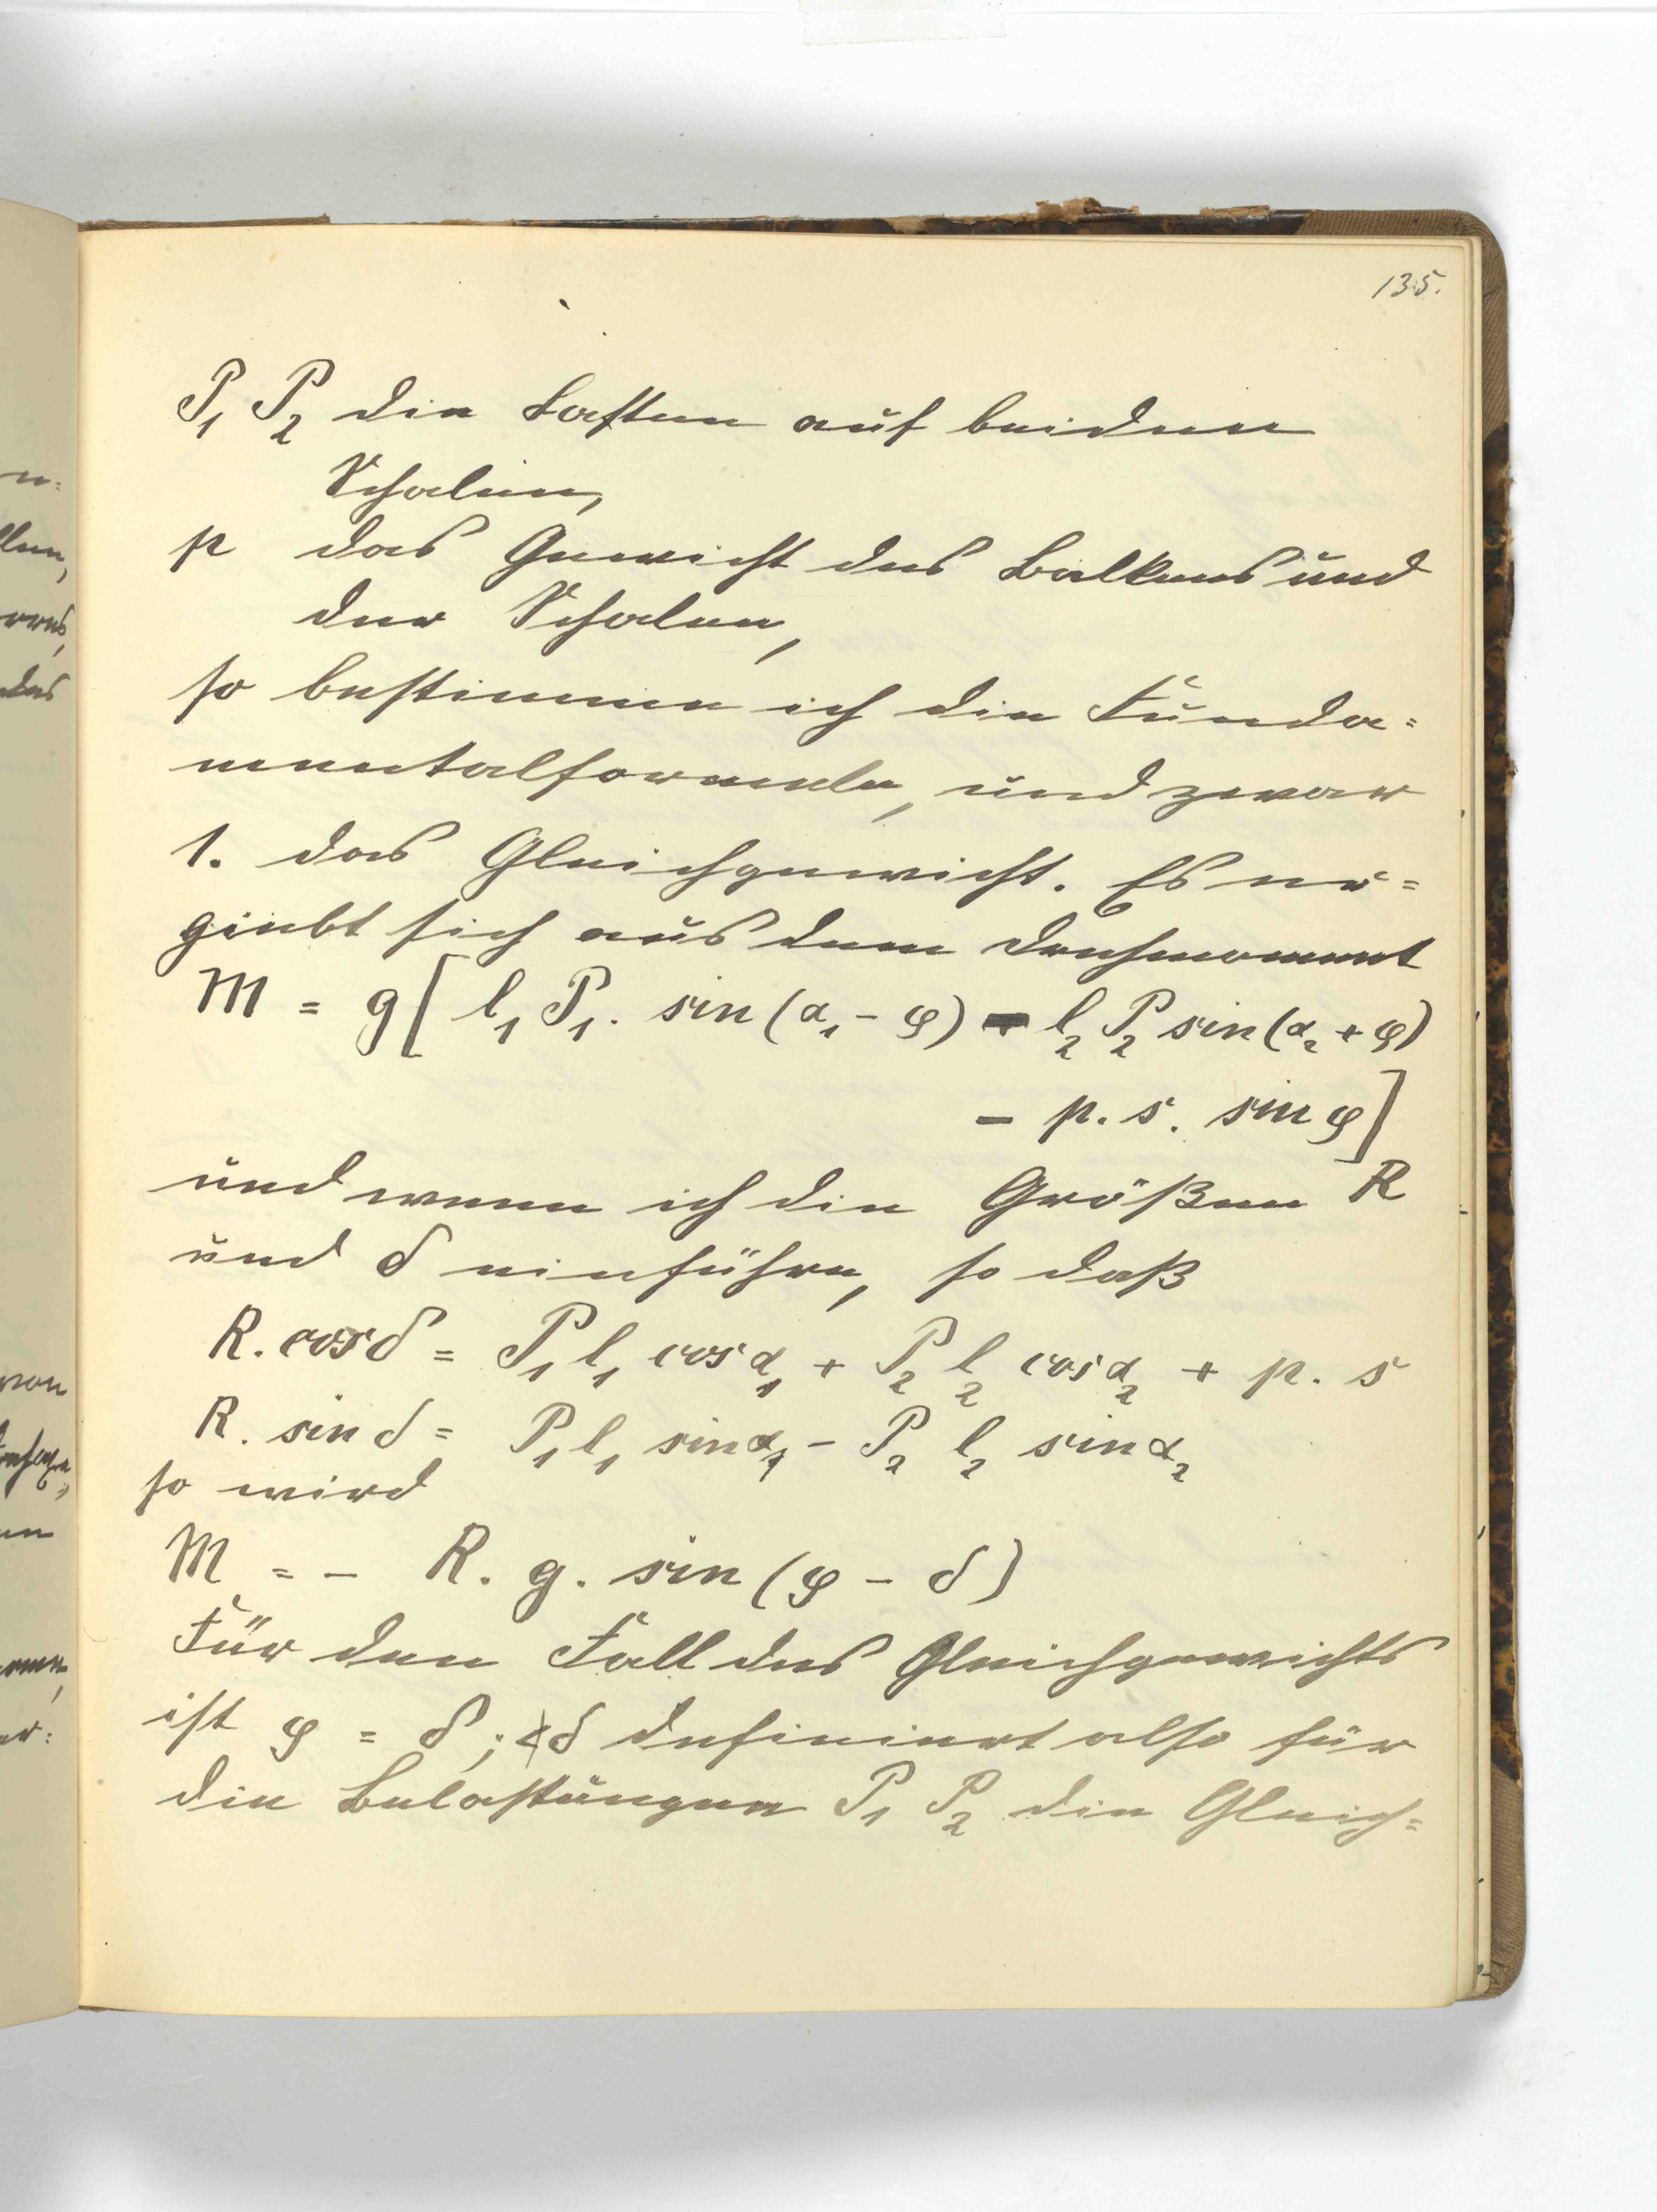 135.
P₁ P₂ die Lasten auf beiden
Schalen,
p das Gewicht des Balkens und
der Schalen,
so bestimme ich die Funda=
mentalformeln, und zwar
1. das Gleichgewicht. Es er=
giebt sich aus dem Drehmoment
M = g[ l₁ P₁. sin(α₁ - φ) - l₂ P₂ sin(α₂ + φ)
- p. s. sin φ]
und wenn ich die Größen R
und δ einführe, so daß
R. cos δ = P₁ l₁ cos α₁ + P₂ l₂ cos α₂ + p. s
R. sin δ = P₁ l₁ sin α₁ - P₂ l₂ sin α₂
so wird
M = - R. g. sin(φ - δ)
Für den Fall des Gleichgewichts
ist φ = δ; δ definiert also für
die Belastungen P₁ P₂ die Gleich=